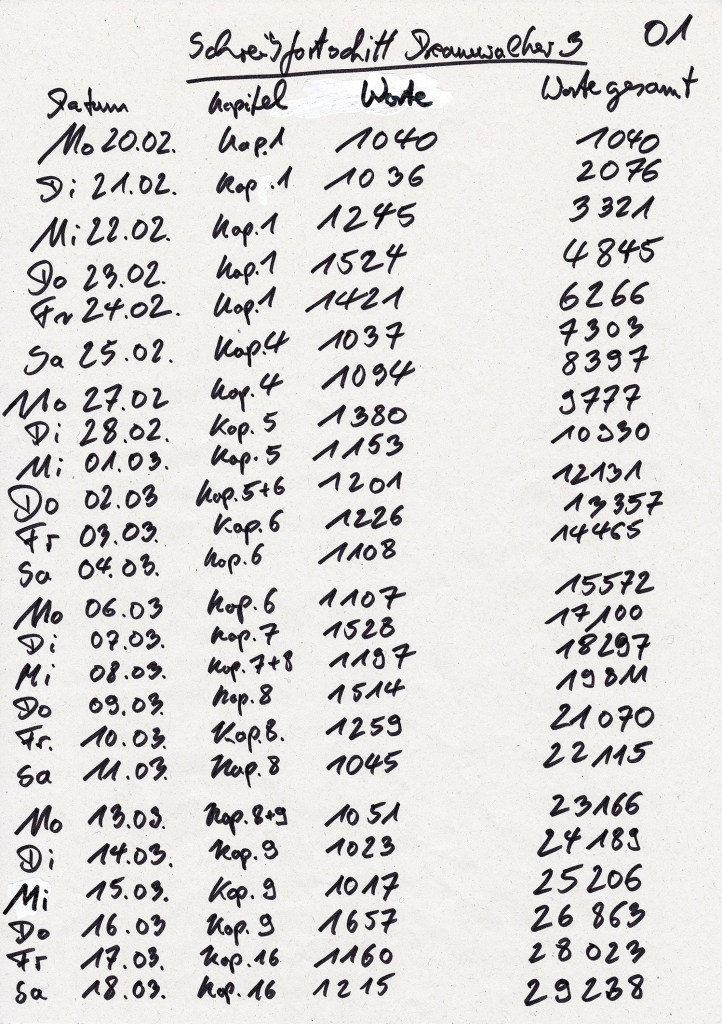 Schreibfortschitt Dreamwalker 3 01
Datum Kapitel Worte Worte gesamt
Mo 20.02. Kap.1 1040 1040
Di 21.02. Kap.1 1036 2076
Mi 22.02. Kap.1 1245 3321
Do 23.02. Kap.1 1524 4845
Fr 24.02. Kap.1 1421 6266
Sa 25.02. Kap.4 1037 7303
Mo 27.02 Kap.4 1094 8397
Di 28.02. Kap.5 1380 9777
Mi 01.03. Kap.5 1153 10930
Do 02.03 Kap.5+6 1201 12131
Fr 03.03. Kap.6 1226 13357
Sa 04.03. Kap.6 1108 14465
Mo 06.03 Kap.6 1107 15572
Di 07.03. Kap.7 1528 17100
Mi 08.03. Kap.7+8 1197 18297
Do 09.03. Kap.8 1514 19811
Fr. 10.03. Kap.8. 1259 21070
Sa 11.03. Kap.8 1045 22115
Mo 13.03. Kap.8+9 1051 23166
Di 14.03. Kap.9 1023 24189
Mi 15.03. Kap.9 1017 25206
Do 16.03 Kap.9 1657 26863
Fr 17.03. Kap.16 1160 28023
Sa 18.03. Kap.16 1215 29238